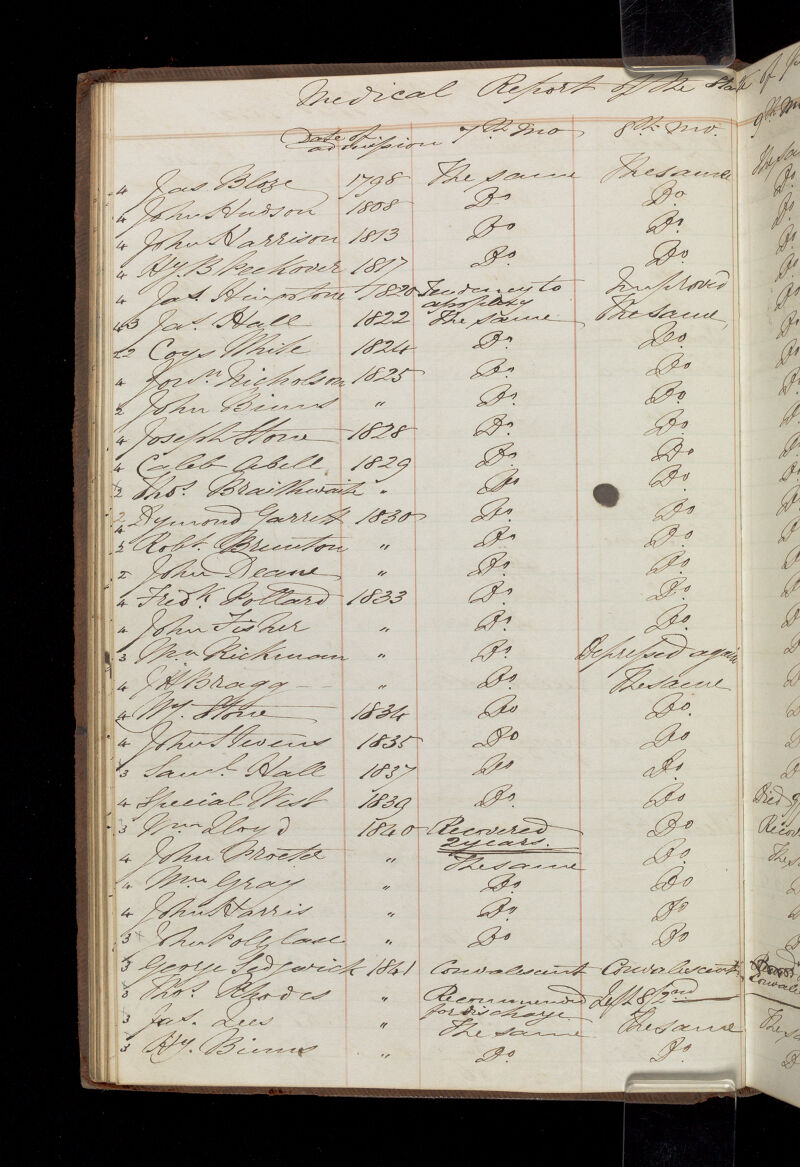 Medical Report of the State of
Date of admission 7th Mo 8th Mo. 9th Mo
4 Jas Bloze 1798 The same The same
4 John Hudson 1808 Do Do
4 John Harrison 1813 Do Do
4 Hy. B Peckover 1817 Do Do
4 Jas. Himpstone 1820 Tendency to apoplexy Improved
3 Jas. Hall 1822 The same The same
2 Coys White 1824 Do Do
4 Jonn. Nicholson 1825 Do Do
2 John Binns " Do Do
4 Joseph Stone 1828 Do Do
4 Caleb Abell 1829 Do Do
2 Thos. Braithwaite " Do Do
2 Dymond Garrett 1830 Do Do
2 Robt. Brunton " Do Do
2 John Deane " Do Do
4 Fredk. Pollard 1833 Do Do
4 John Fisher " Do Do
3 Wm Rickman " Do Depressed again
4 JH Bragg " Do The same
4 Wm. Stone 1834 Do Do
4 John S Ivens 1835 Do Do
3 Saml. Hall 1837 Do Do
4 Special West 1839 Do Do
3 Wm Lloyd 1840 Recovered 2 years. Do
4 John Procter " The same Do
4 Wm Gray " Do Do
4 John Harris " Do Do
3 John Polglase " Do Do
3 George Sedgwick 1841 Convalescent Convalescent
3 Thos. Rhodes " Recommended for discharge Left 8/2nd
3 Jas. Lees " The same The same
3 Hy. Binns " Do Do